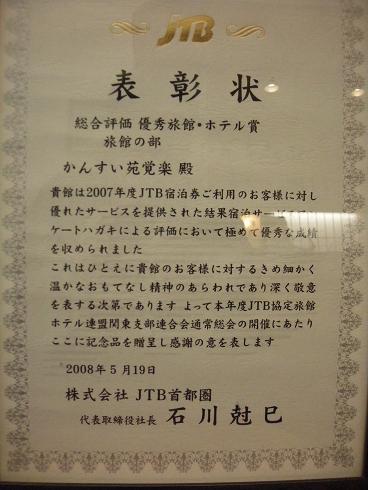 JTB
表彰状
総合評価 優秀旅館・ホテル賞
旅館の部
かんすい苑覚楽 殿
貴館は2007年度JTB宿泊券ご利用のお客様に対し
優れたサービスを提供された結果宿泊サービス
ケートハガキによる評価において極めて優秀な成績
を収められました
これはひとえに貴館のお客様に対するきめ細かく
温かなおもてなし精神のあらわれであり深く敬意
を表する次第であります よって本年度JTB協定旅館
ホテル連盟関東支部連合会通常総会の開催にあたり
ここに記念品を贈呈し感謝の意を表します
2008年5月19日
株式会社 JTB首都圏
代表取締役社長 石川尅巳